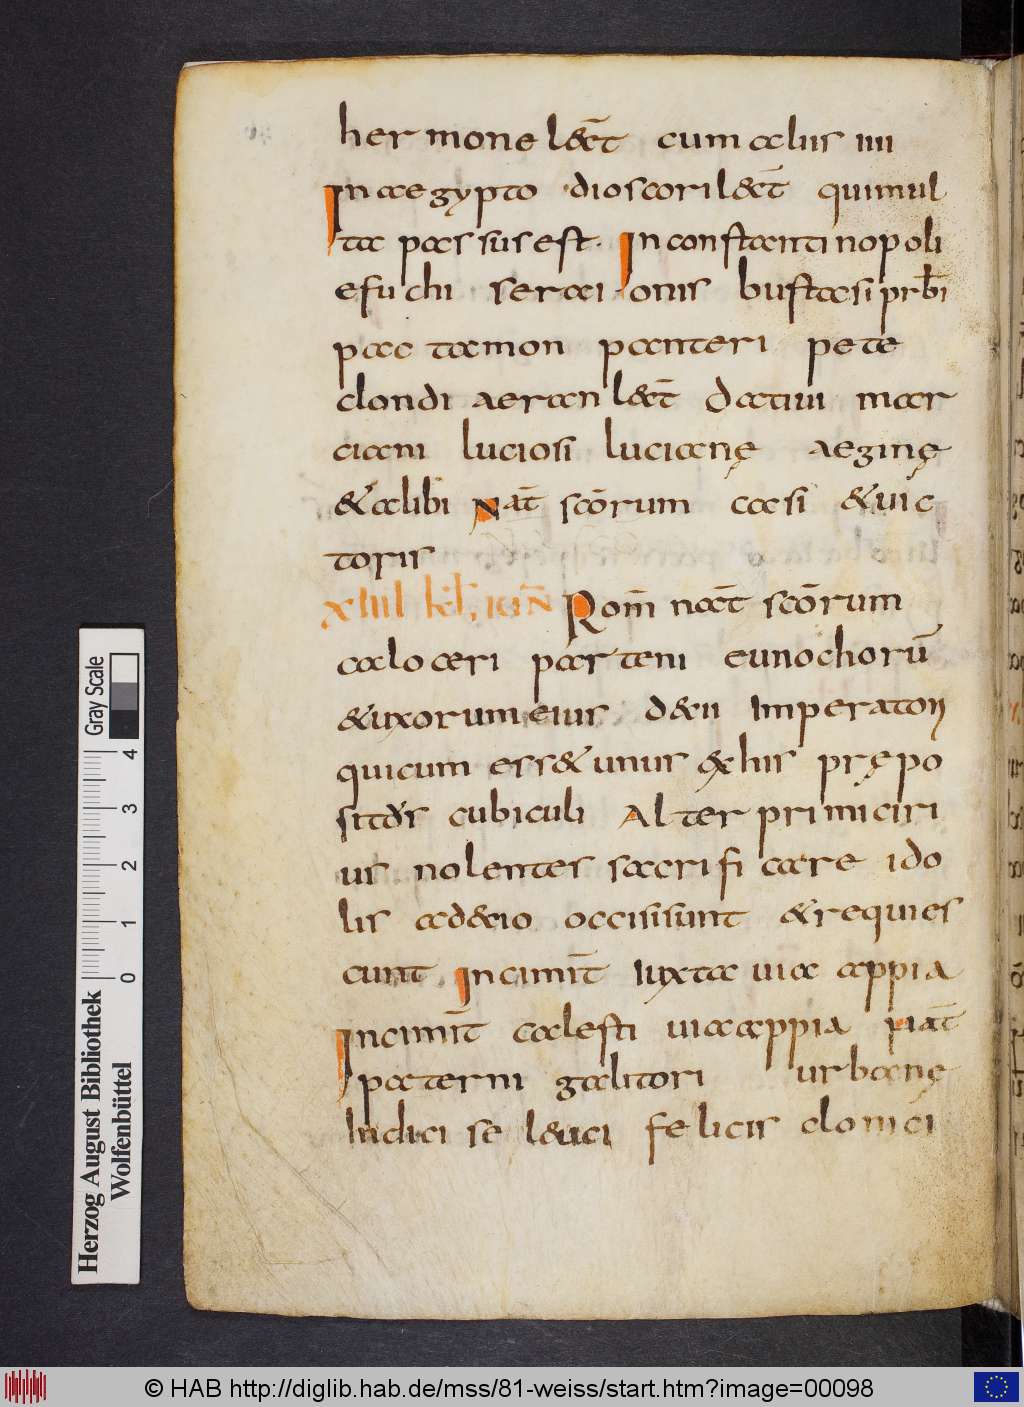 hermone lect̄ cum aliis iiii
In aegypto dioscori lect̄ qui mul
ta passus est. In constantinopoli
efuchi seraci onis bustasi prb̄i
pac tamon panteri pete
clondi aeran lect̄ datiui mar
ciani luciosi lucianę aeginę
& alibi Nat̄ scōrum casi & uic
toris
XIIII kl̄, iun̄ Rom̄ nat̄ scōrum
caloceri parteni eunochorū
& uxorum eius decii Imperatorij
qui cum ess& unus ex his prępo
sitor cubiculi Alter primiciri
us nolentes sacrificare ido
lis a decio occisi sunt & requies
cunt In cimit̄ iuxta uia appia
In cimit̄ calesti uia appia riat̄
paterni galitori urbanę
Indici se leuci felicis clonici
Gray Scale
4
3
2
1
0
Herzog August Bibliothek
Wolfenbüttel
© HAB http://diglib.hab.de/mss/81-weiss/start.htm?image=00098